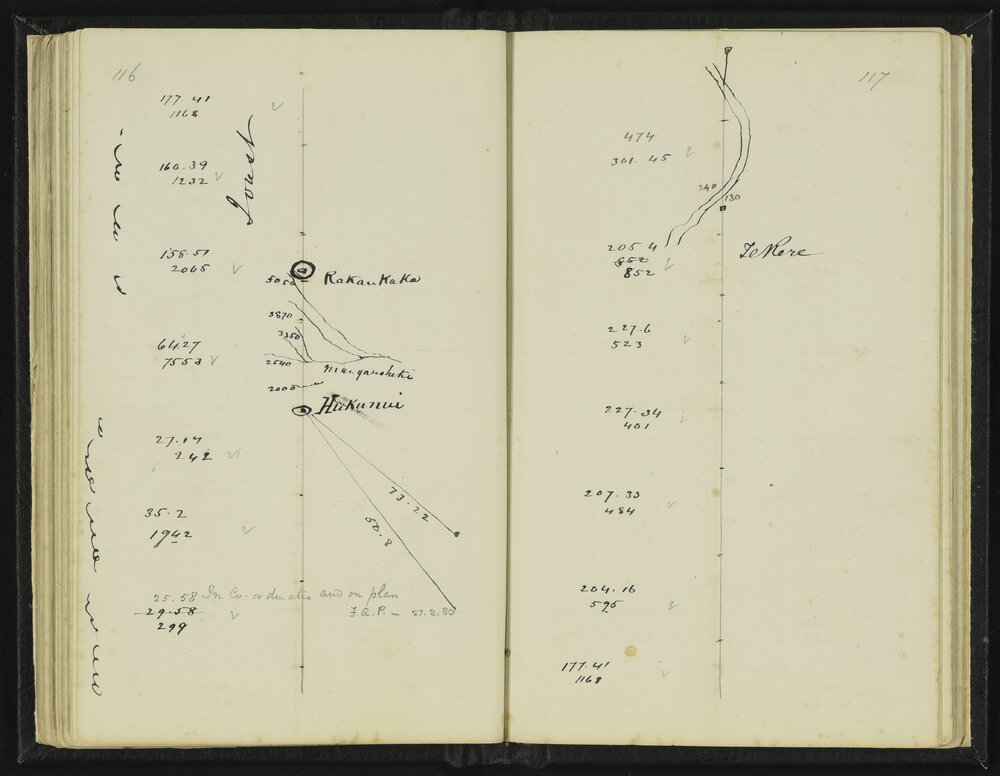 116
177.41
1168
160.39
1232
Forest
158.51
2065
5050
RaKauKaKa
3870
3350
64.27
7553
2540
Mangaoheki
2000
HuKanui
27.17
242
73.22
50.8
35.2
1942
25.58 In Co-ordinates and on plan
29.58
F.A.P. - 27.2.50
299
117
474
301.45
240
130
205.4
852
852
Te Rere
227.6
523
227.34
401
207.33
484
204.16
595
177.41
1168